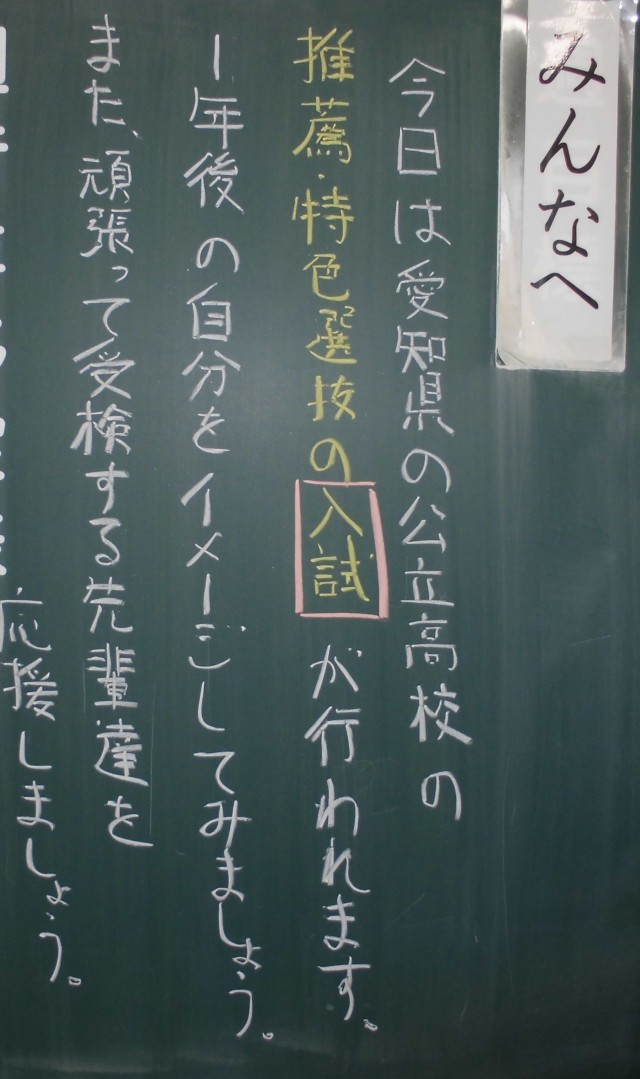 みんなへ
今日は愛知県の公立高校の
推薦・特色選抜の入試が行われます。
1年後の自分をイメージしてみましょう。
また、頑張って受検する先輩達を
応援しましょう。